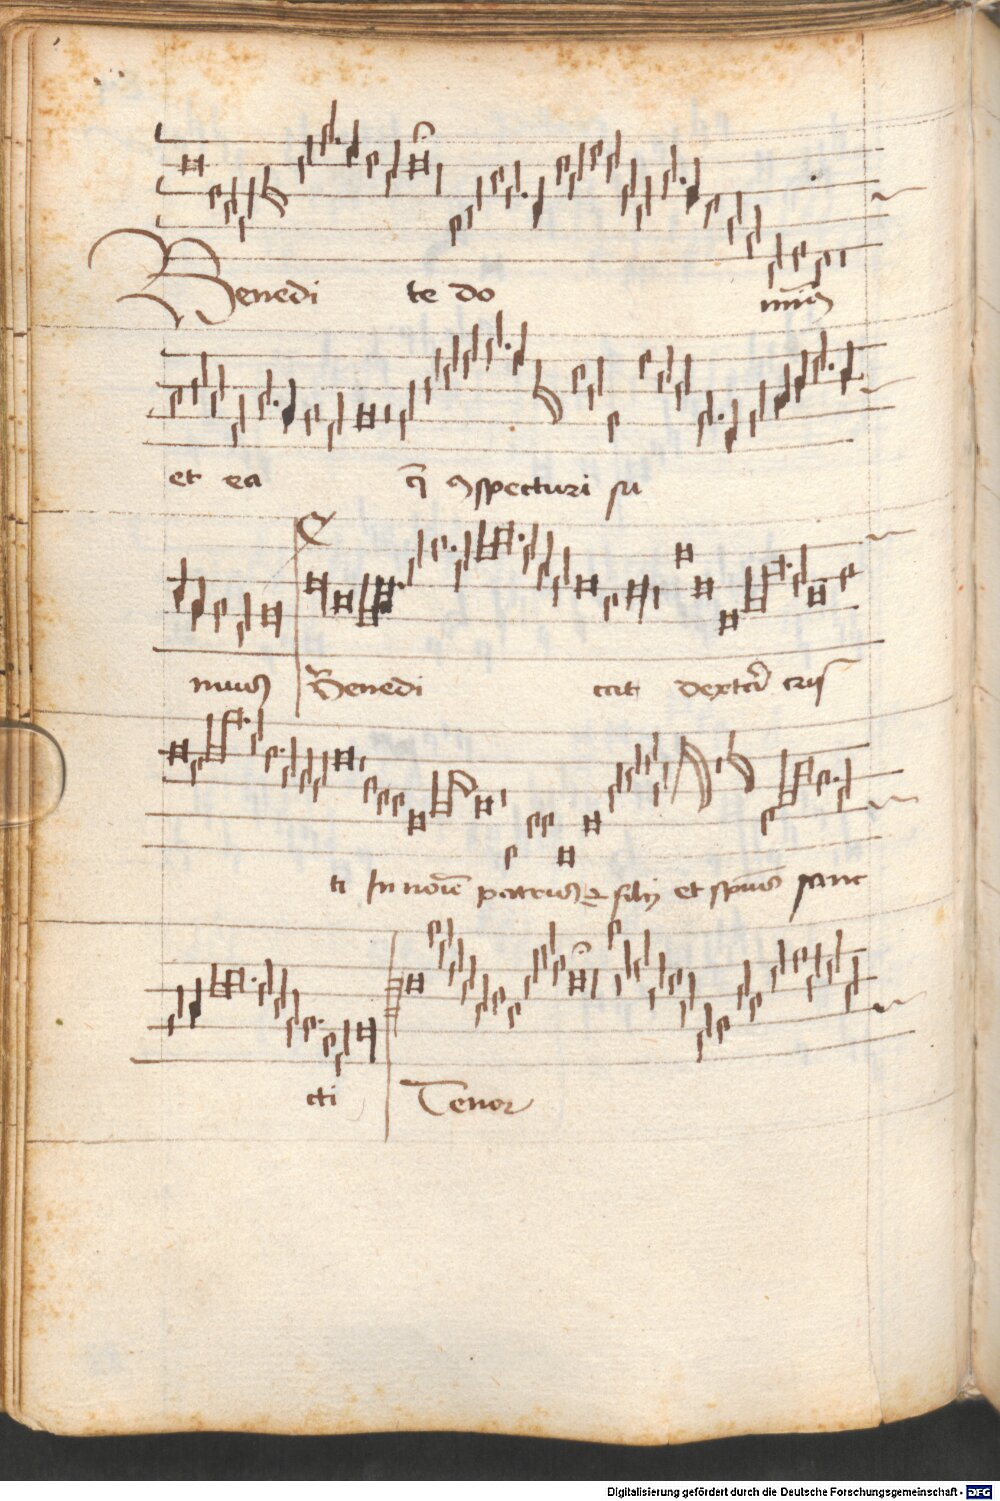 Benedi te do mīs
et ea q̄ ꝯspecturi su
mus Benedi cat dextera cris
ti In noīe patris et filij et spūs sanc
cti Tenor
Digitalisierung gefördert durch die Deutsche Forschungsgemeinschaft - DFG